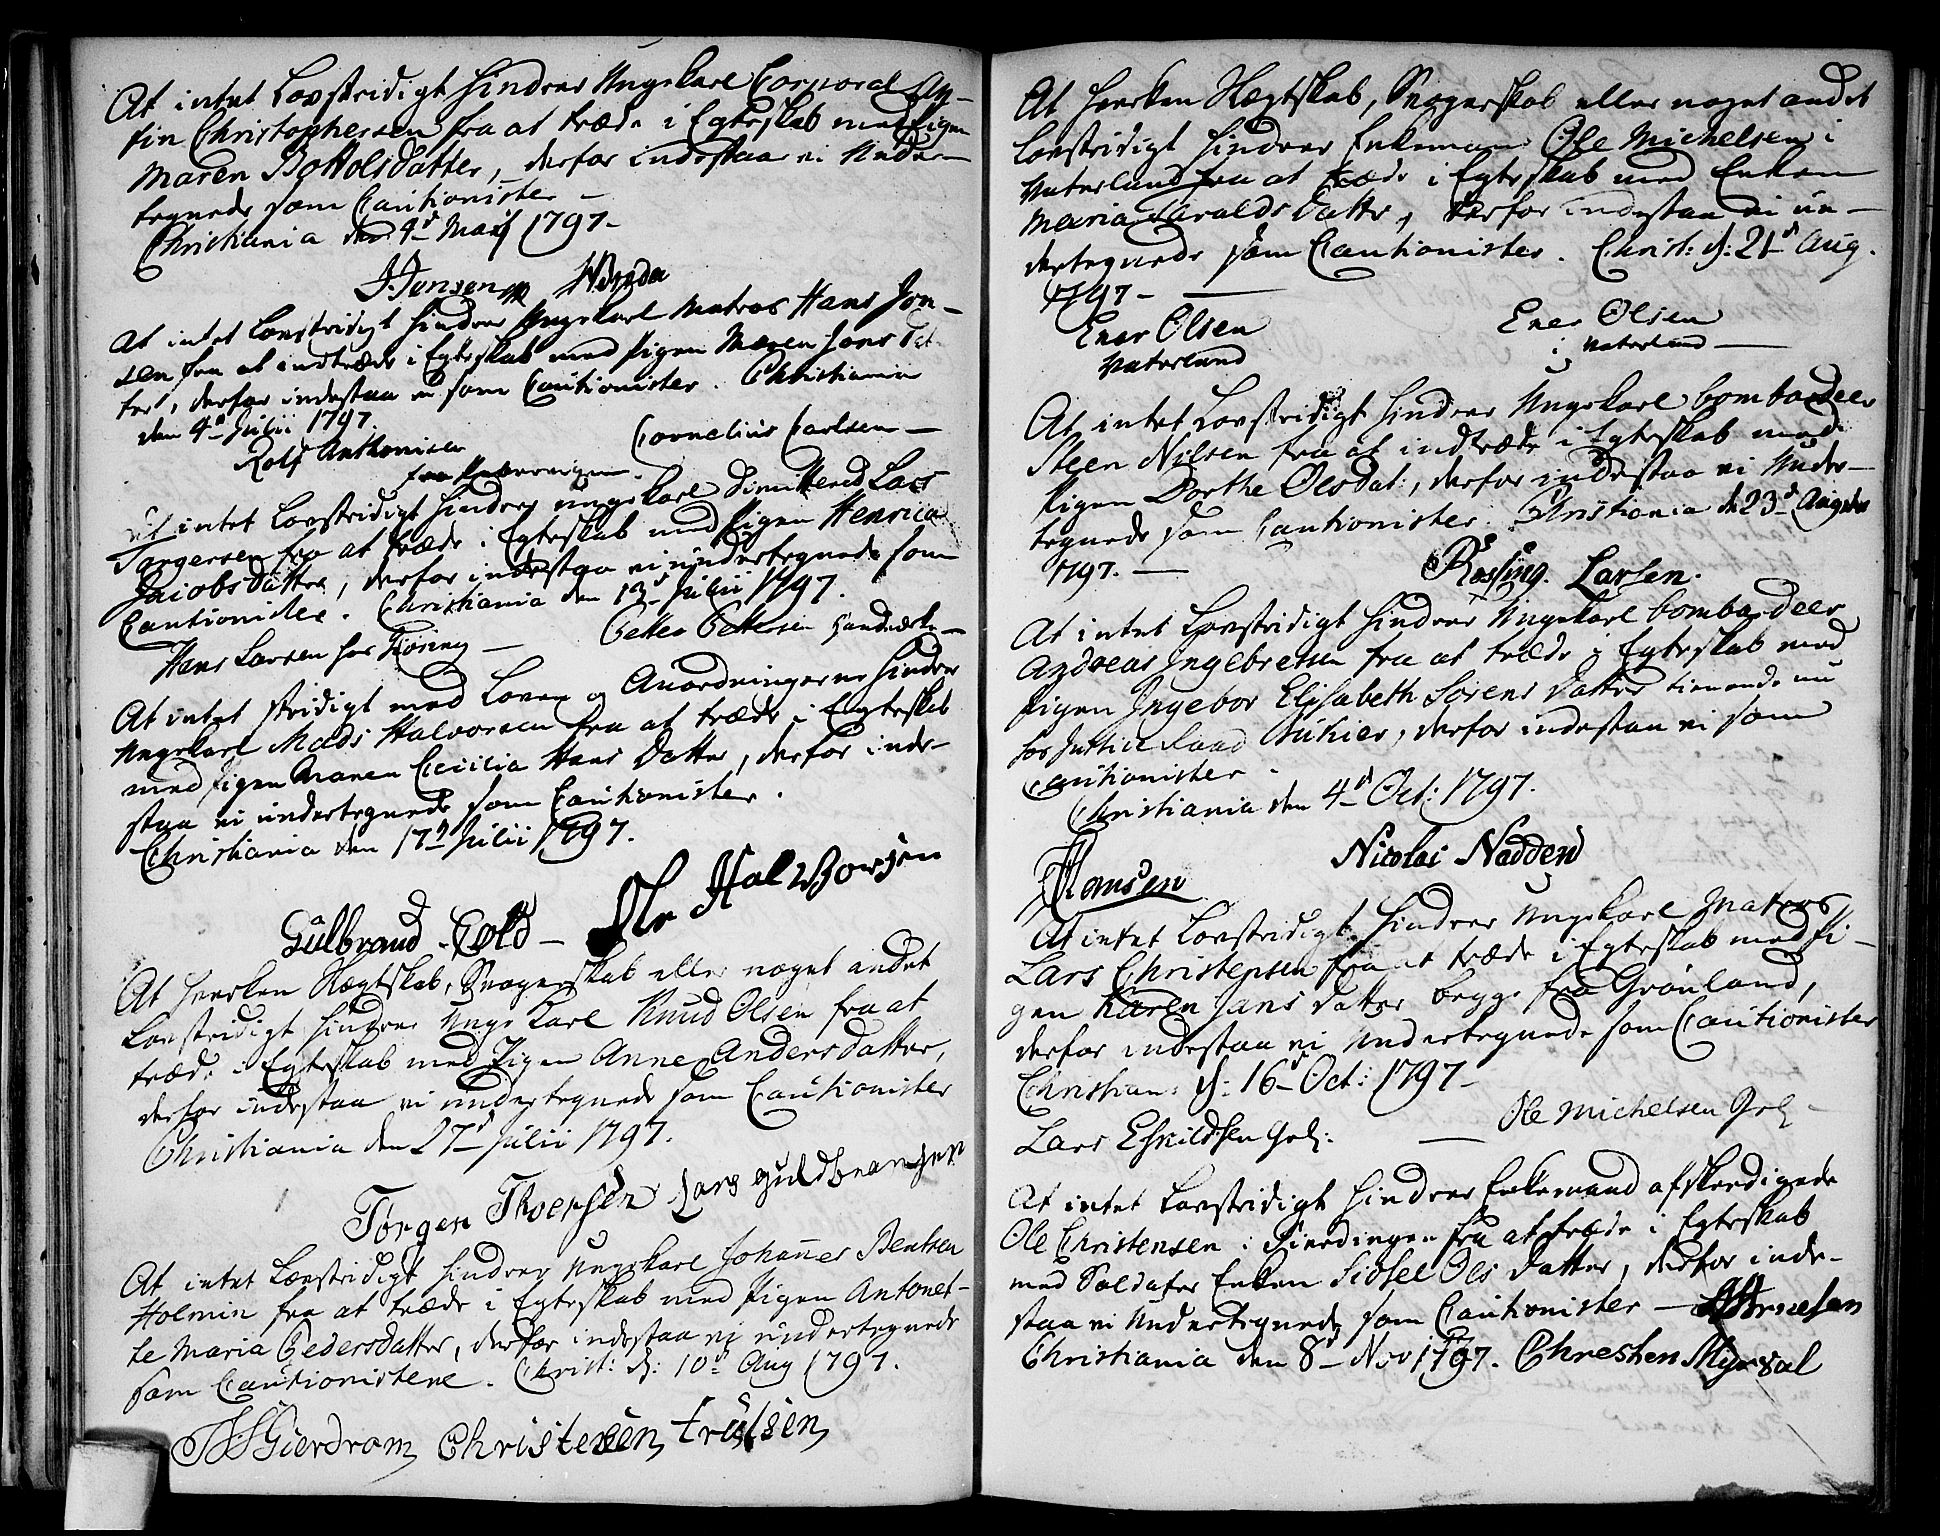 At intet Lovstridigt hindrer Ungekarl Corporal An-
fin Christophersen fra at træde i Egteskab med Pigen
Maren Bottolsdatter, derfor indestaar vi Under-
tegnede som Cautionister –
Christiania den 4d Maij 1797 –
Jensen
At intet Lovstridigt hindrer Ungekarl Matros Hans Jon-
sen fra at indtræde i Egteskab med Pigen Maren Jens Dat-
ter, derfor indestaa vi som Cautionister. Christiania
den 4d Julii 1797.
Rolf Anthonisen Cornelius Carlsen –
fra
At intet Lovstridigt hindrer ungekarl Dimittered Lars
Torgersen fra at træde i Egteskab med Pigen Henrica
Jacobsdatter, derfor indestaa vi undertegnede som
Cautionister. Christiania den 13d Julii 1797.
Hans Larsen hos – Petter Pettersen
At intet stridigt med Loven og Anordningerne hindrer
Ungekarl Mads Halvorsen fra at træde i Egteskab
med Pigen Maren Cicilia Hans Datter, derfor inde-
staa vi undertegnede som Cautionister.
Christiania den 17d Julii 1797.
Gulbrand Eold – Ole Halvorsen
At hverken Slægtskab, Svogerskab eller noget andet
Lovstridigt hindrer Unge Karl Knud Olsen fra at
træde i Egteskab med Pigen Anne Andersdatter,
derfor indestaa vi undertegnede som Cautionister
Christiania den 27d Julii 1797.
Tørgen Thoersen Lars Guldbransen
At intet Lovstridigt hindrer Ungekarl Johannes Bentsen
Holmin fra at træde i Egteskab med Pigen Antonet-
te Maria Pedersdatter, derfor indestaa vi undertegnede
som Cautionistere. Christ: d: 10d Aug 1797.
Gierdrom Christensen Trulsen
At hverken Slægtskab, Svogerskab eller noget andet
Lovstridigt hindrer Enkemand Ole Michelsen i
Vaterland fra at træde i Egteskab med Enken
Maria Haralds Datter, derfor indestaa vi un-
dertegnede som Cautionister. Christ: d: 21d Aug.
1797 –
Ener Olsen Ener Olsen
Vaterland i Vaterland –
At intet Lovstridigt hindrer Ungekarl bombardeer
Steen Nilsen fra at indtræde i Egteskab med
Pigen Dorthe Olsdat:, derfor indestaa vi Under-
tegnede som Cautionister. Christiania d. 23d Augustii
1797. –
Røssing. Larsen.
At intet Lovstridigt hindrer Ungekarl bombardeer
Andreas Ingebretsen fra at træde i Egteskab med
Pigen Ingebor Elisabeth Sørens Datter tienende nu
hos Justice Raad, derfor indestaa vi som
Cautionister –
Christiania den 4d Oct: 1797.
Hansen Nicolai Nadden
At intet Lovstridigt hindrer Ungekarl Matros
Lars Christensen fra at træde i Egteskab med Pi-
gen Karen Jans Datter begge fra Grønland,
derfor indestaa vi Undertegnede som Cautionister
Christian: d: 16d Oct: 1797 –
Lars Eskildsen – Ole Michelsen
At intet Lovstridigt hindrer Enkemand afskedigede
Ole Christensen i Pierdingen fra at træde i Egteskab
med Soldater Enken Sidsel Ols Datter, derfor inde-
staa vi Undertegnede som Cautionister – Arnesen
Christiania den 8d Nov 1797. Chresten Myrdal